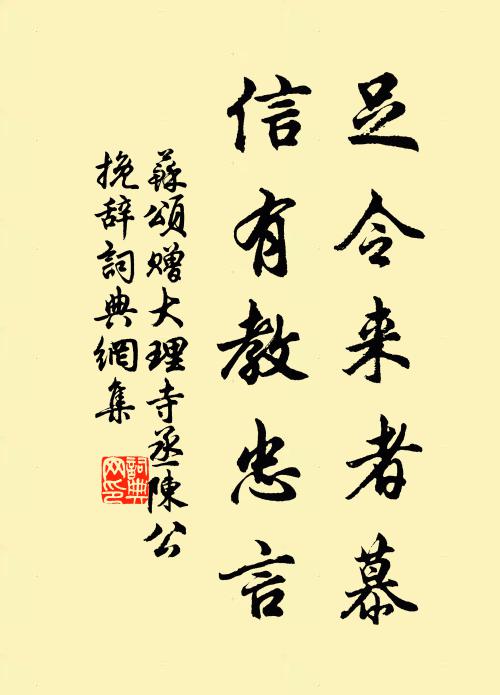 足令来者慕
信有教忠言
蘇頌贈大理寺丞陳公
挽辞詞典網集
詞典网印